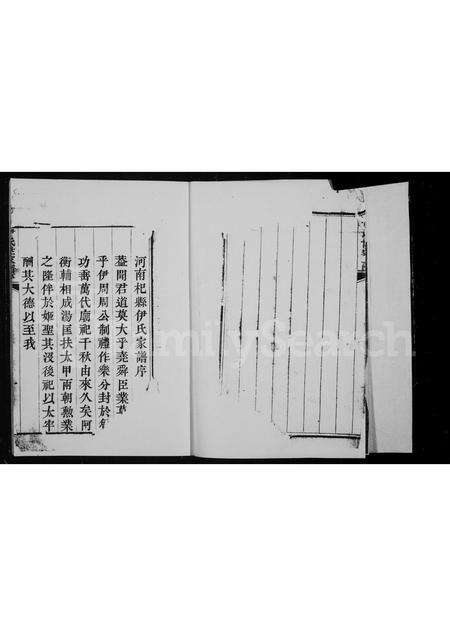 河南杞縣伊氏家譜序
蓋聞君道莫大乎堯舜臣業
乎伊周周公制禮作樂分封於
功書萬代廟祀千秋由來久矣阿
衡輔相成湯匡扶太甲兩朝勲業
之隆伴於姬聖其沒後祀以太牢
酬其大德以至我
FamilySearch